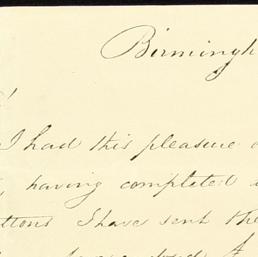 Birmingh
I had this pleasure
having completed
ttons I have sent the